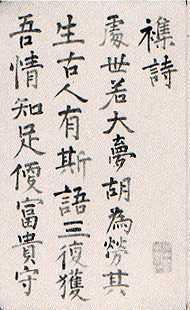 襍詩
處世若大夢胡為勞其
生古人有斯語三復獲
吾情知足便富貴守